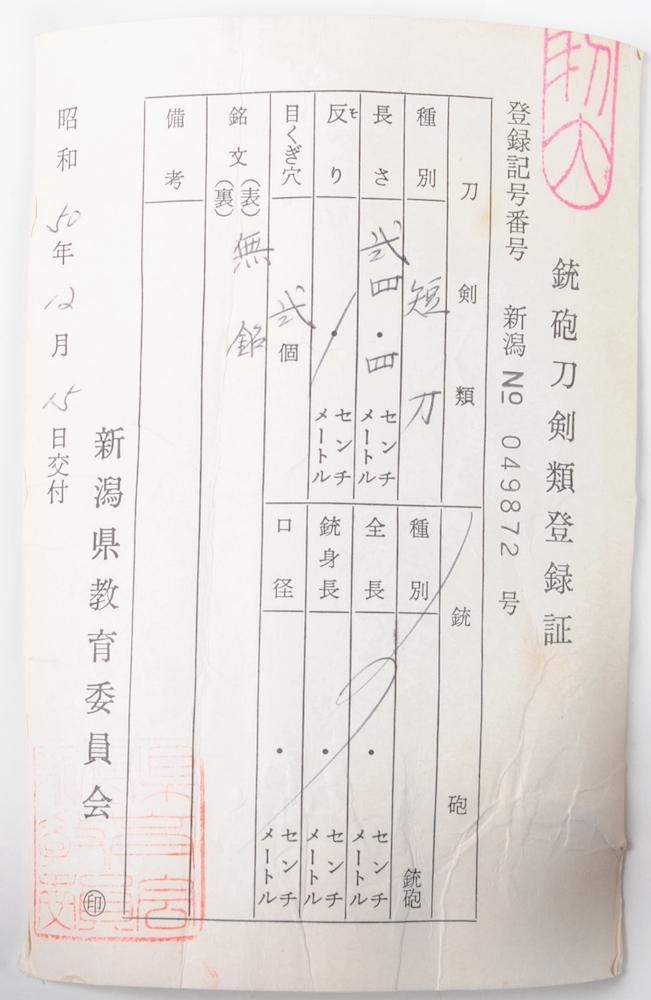 銃砲刀剣類登録証
登録記号番号 新潟 No 049872 号
刀剣類
種別 短刀
長さ 弐四・四 センチメートル
反り ・ センチメートル
目くぎ穴 弐個
銘文 (表) 無銘
(裏)
備考
銃砲
種別 銃砲
全長 ・ センチメートル
銃身長 ・ センチメートル
口径 ・ センチメートル
昭和50年12月15日交付
新潟県教育委員会 印